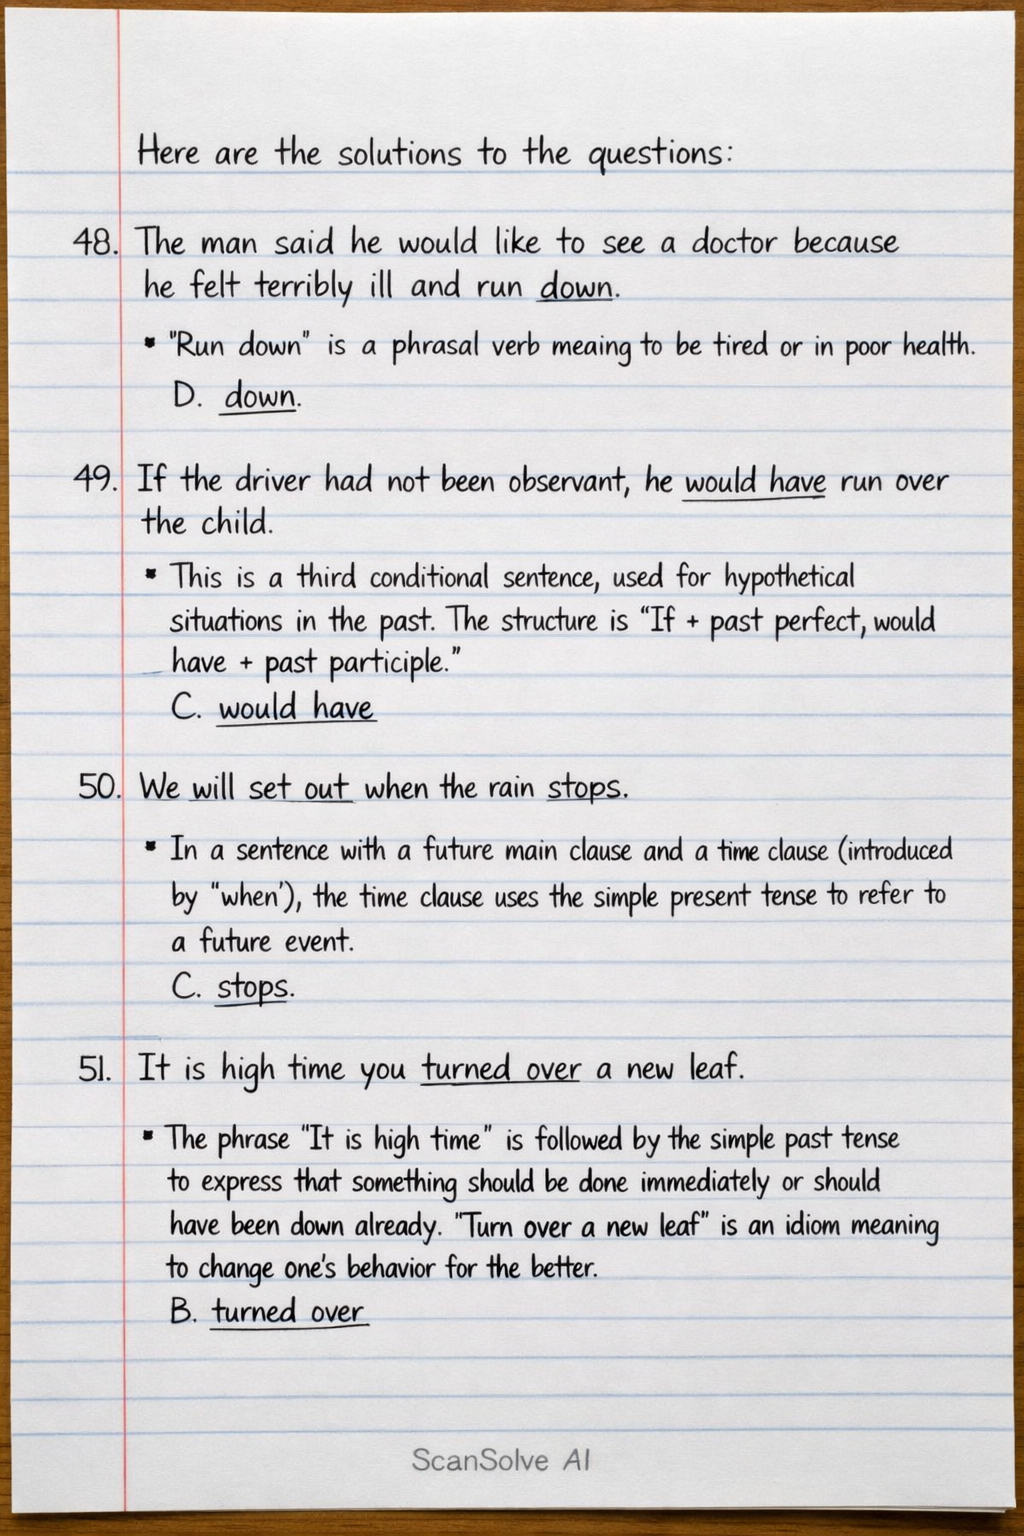 Here are the solutions to the questions:
48. The man said he would like to see a doctor because
he felt terribly ill and run down.
▪ "Run down" is a phrasal verb meaing to be tired or in poor health.
D. down.
49. If the driver had not been observant, he would have run over
the child.
▪ This is a third conditional sentence, used for hypothetical
situations in the past. The structure is “If + past perfect, would
have + past participle.”
C. would have
50. We will set out when the rain stops.
▪ In a sentence with a future main clause and a time clause (introduced
by "when'), the time clause uses the simple present tense to refer to
a future event.
C. stops.
51. It is high time you turned over a new leaf.
▪ The phrase "It is high time" is followed by the simple past tense
to express that something should be done immediately or should
have been down already. "Turn over a new leaf" is an idiom meaning
to change one's behavior for the better.
B. turned over
ScanSolve AI